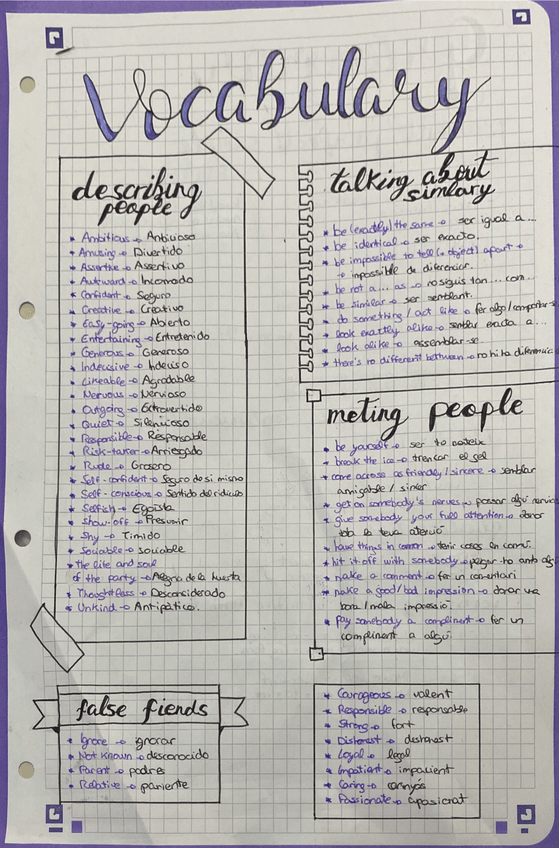 Vocabulary
describing
people
* Ambitious → Ambicioso
* Amusing → Divertido
* Assertive → Asertivo
* Autward → Incomodo
* Confident → Seguro
* Creative → Creativo
* Easy-going → Abierto
* Entertaining → Entretenido
* Generous → Generoso
* Indecisive → Indeciso
* Likeable → Agradable
* Nervous → Nervioso
* Outgoing → Extrovertido
* Quiet → Silencioso
* Responsible → Responsable
* Risk-taker → Arriesgado
* Rude → Grosero
* Self-confident → Seguro de si mismo
* Self-conscious → Sentido del ridiculo
* Selfish → Egoista
* Show-off → Presumir
* Shy → Timido
* Sociable → sociable
* the life and soul
of the party → Alegria de la huerta
* Thoughtless → Desconsiderado
* Unkind → Antipático.
talking about
simlary
* be (exactly) the same → ser igual a...
* be identical → ser exacto
* be impossible to tell (+ object) apart →
→ impossible de diferenciar.
* be not a... as → no siguis tan... com...
* be similar → ser semblant.
* do something / act like → fer algo / comportar-s
* look exactly alike → semblar exacta a...
* look alike → assemblar-se
* there's no different between → no hi ha diferencia
meting people
* be yourself → ser tu mateix
* break the ice → trencar el gel
* come across as friendly / sincere → semblar
amigable / sincer
* get on somebody's nerves → possar algú nervios
* give somebody your full attention → donar
tota la teva atenció
* have things in common → tenir coses en comú.
* hit it off with somebody → pegar-te amb alg
* make a comment → fer un comentari
* make a good/bad impression → donar una
bona / mala impressió.
* Pay somebody a compliment → fer un
compliment a algú.
false fiends
* Ignore → ignorar
* Not known → desconocido
* Parent → padres
* Relative → pariente
* Courageous → valent
* Responsible → responsable
* Strong → fort
* Dishonest → deshonest
* Loyal → legal
* Impatient → impacient
* Caring → carinyós
* Passionate → apasionat